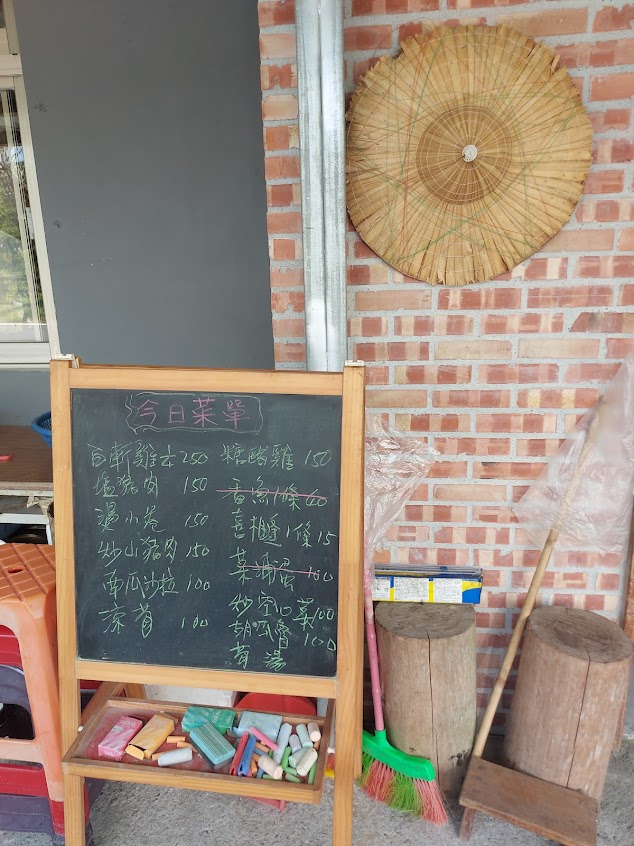 今日菜單
白斬雞 250
鹽豬肉 150
湯小卷 150
炒山豬肉 150
南瓜沙拉 100
涼筍 100
糖醋雞 150
香魚1條 60
喜相逢 1條 15
菜脯蛋 100
炒山菜 100
100
筍湯